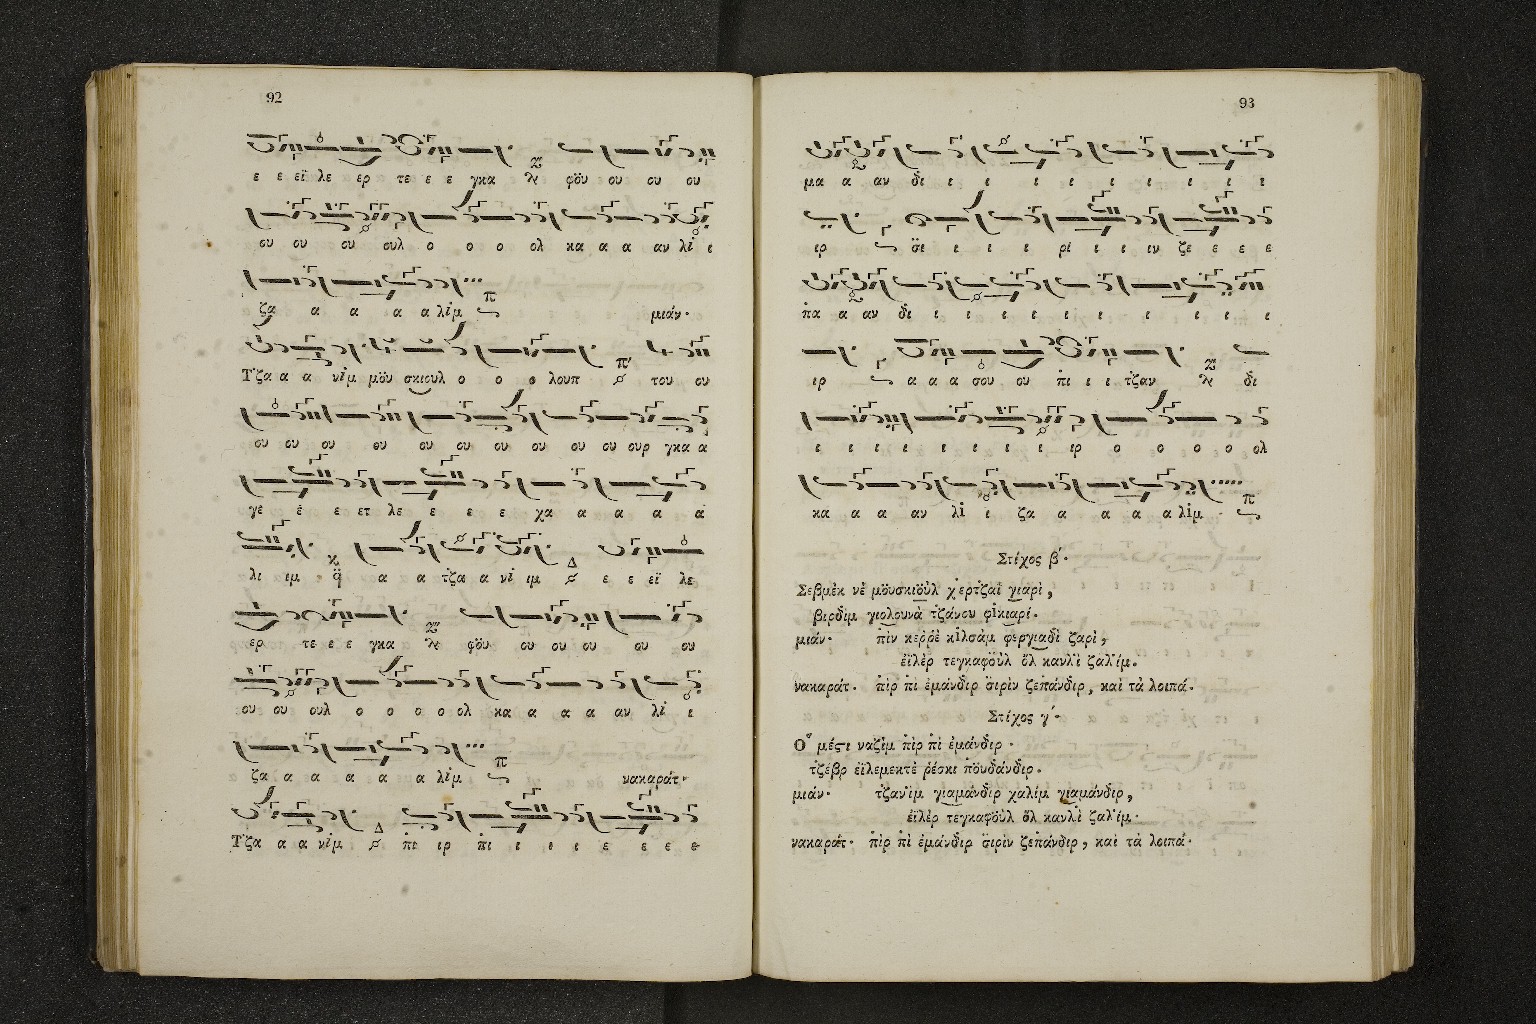 92
ε ε εϊ λε ερ τε ε ε γκα φὅυ ου ου ου
ου ου ου ουλ ο ο ο ολ κα α α αν λὶ ι
ζα α α α α λὶμ μιάν·
Τ̇ζα α α νὶμ μὅυ σκιουλ ο ο ο λουπ του ου
ου ου ου ου ου ου ου ου ου ου ουρ γκα α
γε ε ε ετ λε ε ε ε χα α α α α
λι ιμ α α τ̇ζα α νὶ ιμ ε ε εϊ λε
ερ τε ε ε γκα φὅυ ου ου ου ου ου
ου ου ουλ ο ο ο ο ολ κα α α α αν λὶ ι
ζα α α α α α λὶμ νακαράτ·
Τ̇ζα α α νὶμ πι ιρ πι ι ι ι ε ε ε ε
93
μα α αν δι ι ι ι ι ι ι ι ι ι
ιρ σ̈ι ι ι ι ρὶ ι ι ιν ζε ε ε ε
πα α αν δι ι ι ι ι ι ι ι ι ι ι
ιρ α α α σου ου πι ι ι τζαν δι
ι ι ι ι ι ι ι ι ιρ ο ο ο ο ολ
κα α α αν λὶ ι ζα α α α α λὶμ
Στίχος β΄·
Σεβμὲκ νὲ μὅυσκιοὺλ χερτζαὶ γιαρὶ,
βιρδὶμ γιολουνὰ τζάνου φὶκιαρί·
μιάν· πὶν κερρὲ κὶλσὰμ φεργιαδὶ ζαρὶ,
ἐϊλὲρ τεγκαφὅυλ ὂλ κανλὶ ζαλίμ.
νακαράτ· πὶρ πὶ ἐμάνδιρ σ̈ιρὶν ζεπάνδιρ, καὶ τὰ λοιπά.
Στίχος γ΄·
Οὗ μέςι ναζὶμ πὶρ πὶ ἐμάνδιρ·
τζεβρ ἐϊλεμεκτὲ ῥέσκι πὅυδάνδιρ.
μιάν· τζανὶμ γιαμάνδιρ χαλὶμ γιαμάνδιρ,
ἐϊλὲρ τεγκαφὅυλ ὂλ κανλὶ ζαλίμ·
νακαράτ· πὶρ πὶ ἐμάνδιρ σ̈ιρὶν ζεπάνδιρ, καὶ τὰ λοιπά·